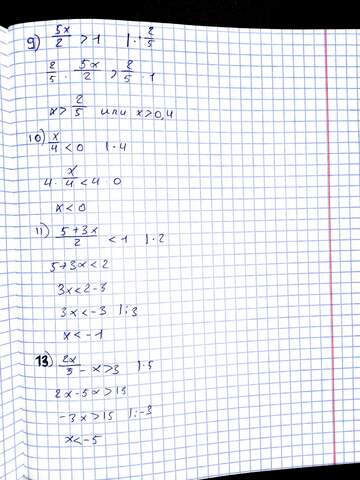 9) 5x/2 > 1 |· 2/5
2/5 · 5x/2 > 2/5 · 1
x > 2/5 или x > 0,4
10) x/4 < 0 |· 4
4 · x/4 < 4 · 0
x < 0
11) 5+3x/2 < 1 |· 2
5+3x < 2
3x < 2-3
3x < -3 |: 3
x < -1
13) 2x/3 - x > 3 |· 5
2x - 5x > 15
-3x > 15 |: -3
x < -5